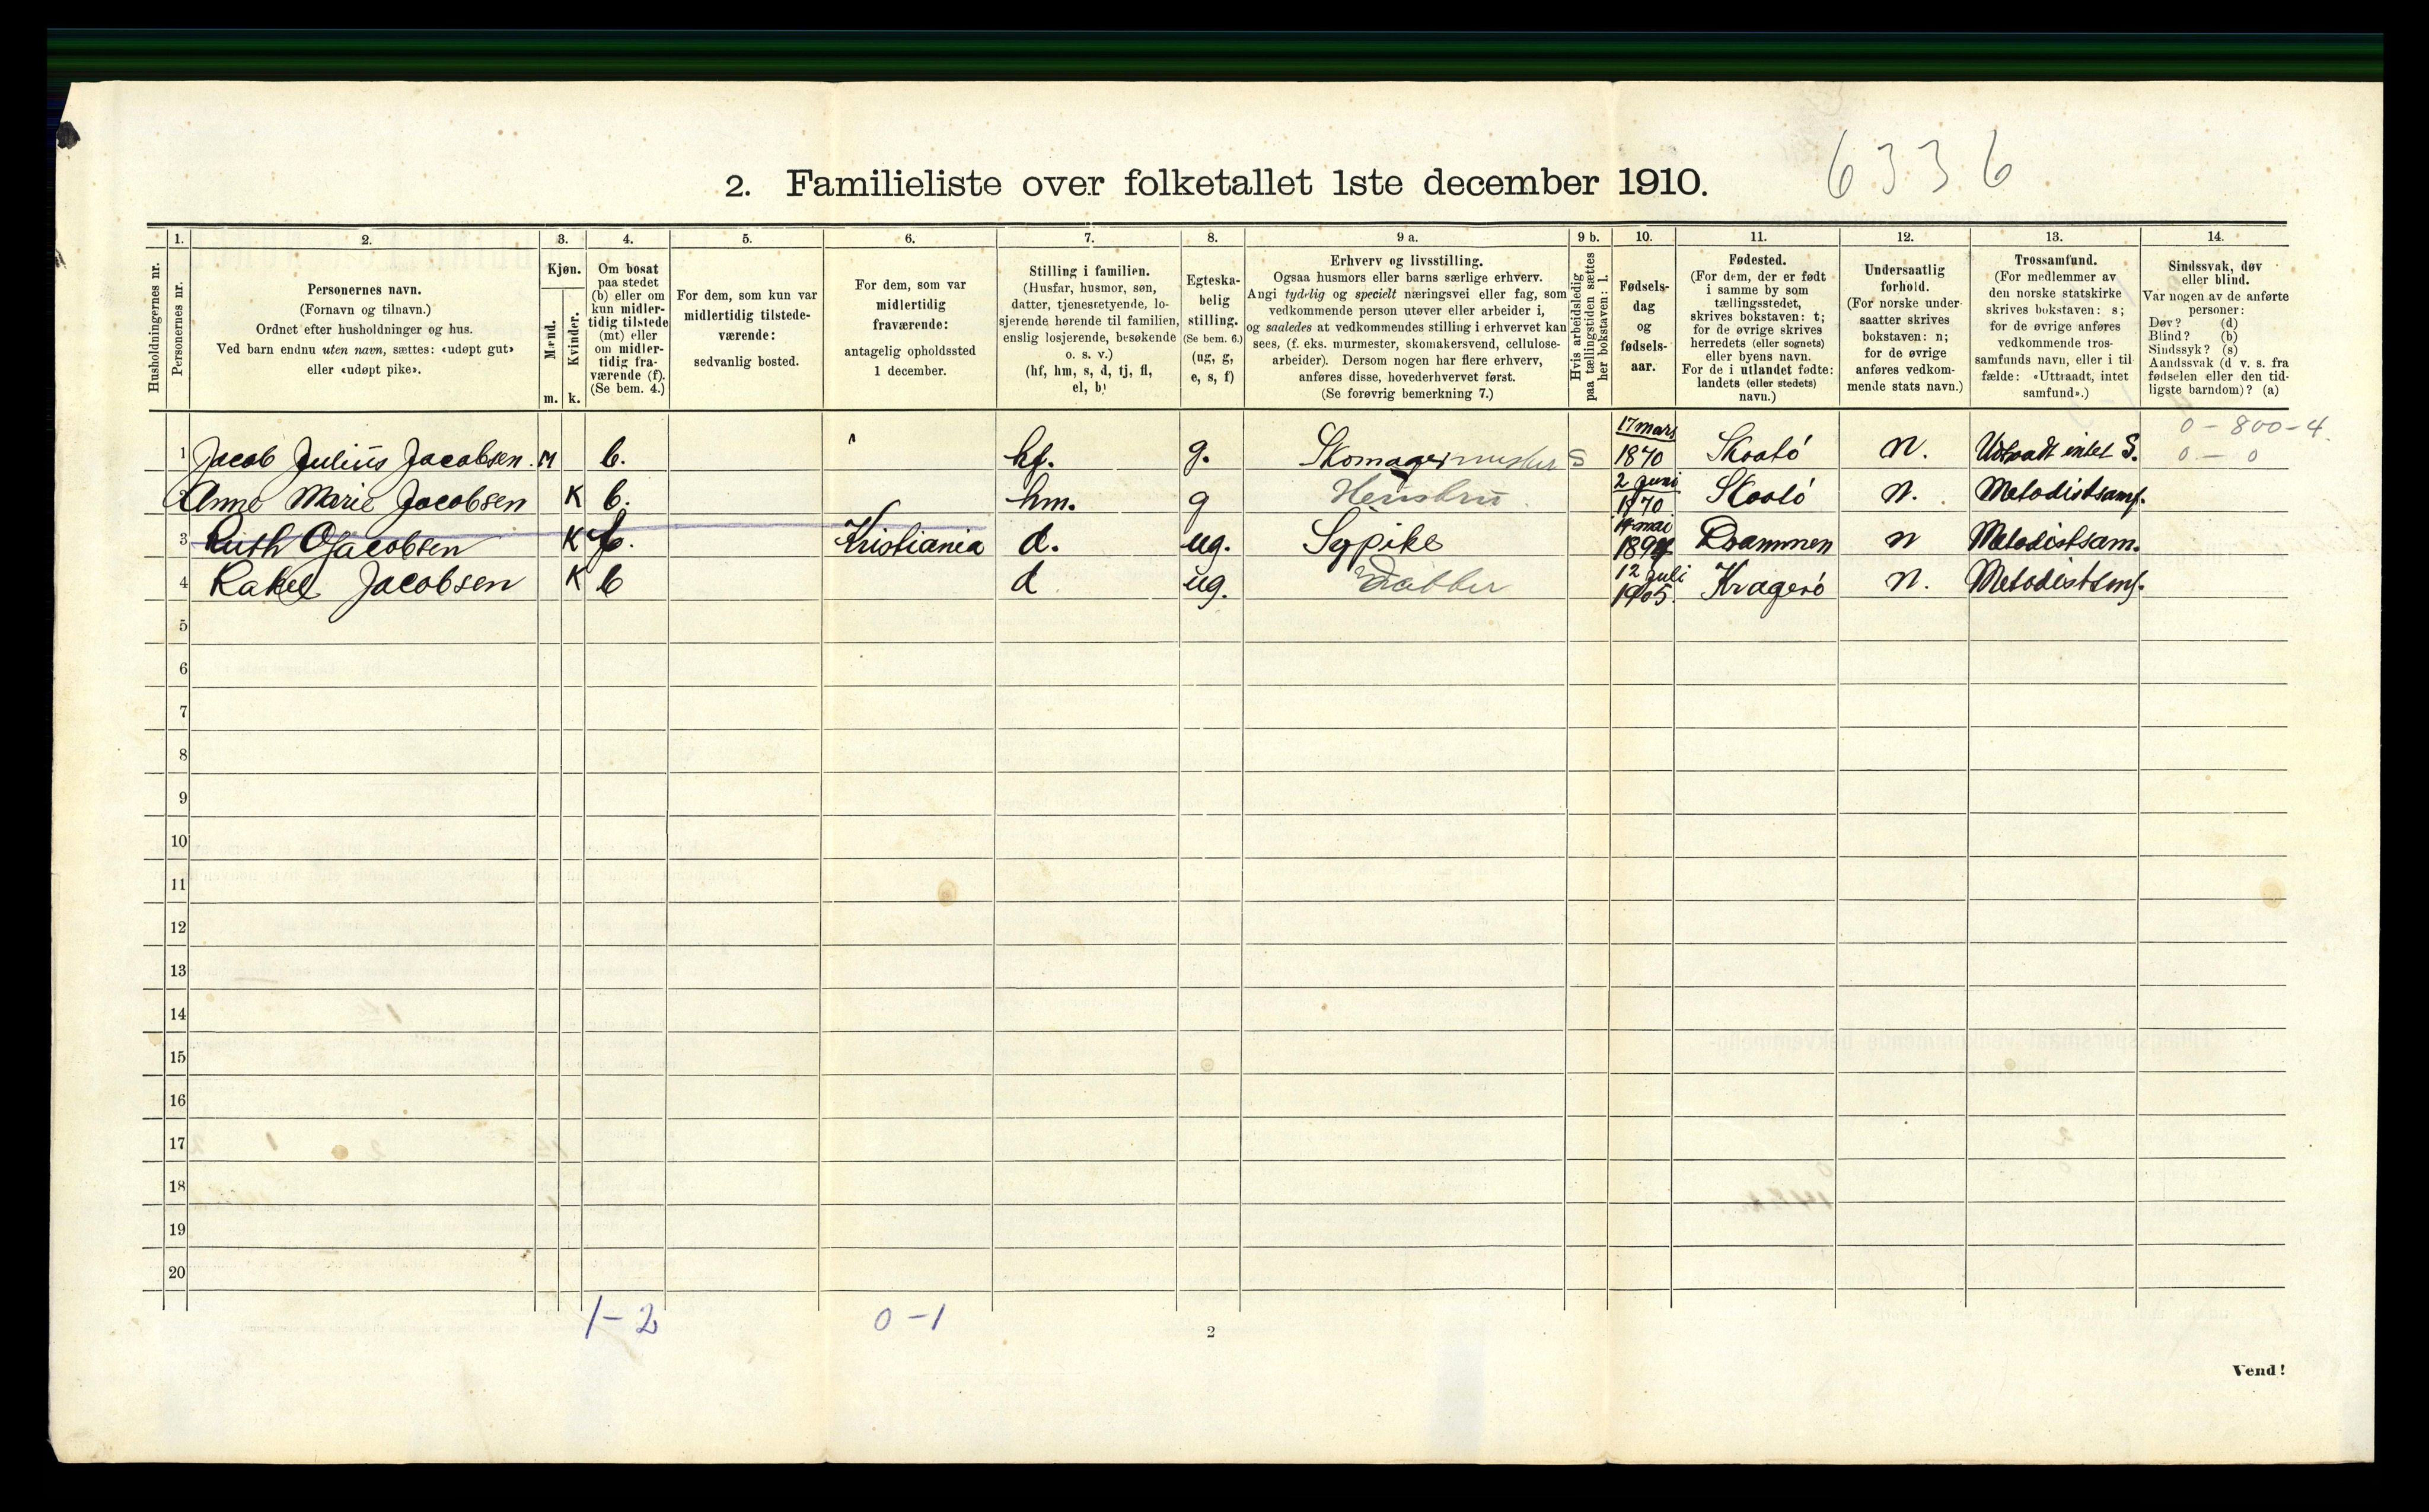 6336
2. Familieliste over folketallet 1ste december 1910.
Husholdningernes nr.
1.
Personernes nr.
2.
Personernes navn.
(Fornavn og tilnavn.)
Ordnet efter husholdninger og hus.
Ved barn endnu uten navn, sættes: «udøpt gut»
eller «udøpt pike».
3.
Kjøn.
Mænd.
Kvinder.
m.
k.
4.
Om bosat
paa stedet
(b) eller om
kun midler-
tidig tilstede
(mt) eller
om midler-
tidig fra-
værende (f).
(Se bem. 4.)
5.
For dem, som kun var
midlertidig tilstede-
værende:
sedvanlig bosted.
6.
For dem, som var
midlertidig
fraværende:
antagelig opholdssted
1 december.
7.
Stilling i familien.
(Husfar, husmor, søn,
datter, tjenestetyende, lo-
sjerende hørende til familien,
enslig losjerende, besøkende
o. s. v.)
(hf, hm, s, d, tj, fl,
el, b)
8.
Egteska-
belig
stilling.
(Se bem. 6.)
(ug, g,
e, s, f)
9 a.
Erhverv og livsstilling.
Ogsaa husmors eller barns særlige erhverv.
Angi tydelig og specielt næringsvei eller fag, som
vedkommende person utøver eller arbeider i,
og saaledes at vedkommendes stilling i erhvervet kan
sees, (f. eks. murmester, skomakersvend, cellulose-
arbeider). Dersom nogen har flere erhverv,
anføres disse, hovederhvervet først.
(Se forøvrig bemerkning 7.)
9 b.
Hvis arbeidsledig
paa tællingstiden sættes
her bokstaven: l.
10.
Fødsels-
dag
og
fødsels-
aar.
11.
Fødested.
(For dem, der er født
i samme by som
tællingsstedet,
skrives bokstaven: t;
for de øvrige skrives
herredets (eller sognets)
eller byens navn.
For de i utlandet fødte:
landets (eller stedets)
navn.)
12.
Undersaatlig
forhold.
(For norske under-
saatter skrives
bokstaven: n;
for de øvrige
anføres vedkom-
mende stats navn.)
13.
Trossamfund.
(For medlemmer av
den norske statskirke
skrives bokstaven: s;
for de øvrige anføres
vedkommende tros-
samfunds navn, eller i til-
fælde: «Uttraadt, intet
samfund».)
14.
Sindssvak, døv
eller blind.
Var nogen av de anførte
personer:
Døv? (d)
Blind? (b)
Sindssyk? (s)
Aandssvak (d v. s. fra
fødselen eller den tid-
ligste barndom)? (a)
0 - 800-4.
1 Jacob Julius Jacobsen. M b. hf. g. Skomagermester S 17 mars 1870 Skaatö n. Udtraadt intet S. 0 - 0
2 Anne Marie Jacobsen K b. hm. g Heustru 2 Juni 1870 Skaatö n. Metodistsamf.
3 Ruth O Jacobsen K f. Kristiania d. ug. Sypike 14 mai 1894 Drammen n Metodistsam.
4 Rakel Jacobsen K b d ug. Datter 12 Juli 1905. Kragerö n. Metodistsmf.
5
6
7
8
9
10
11
12
13
14
15
16
17
18
19
20
1-2 0-1
2
Vend!